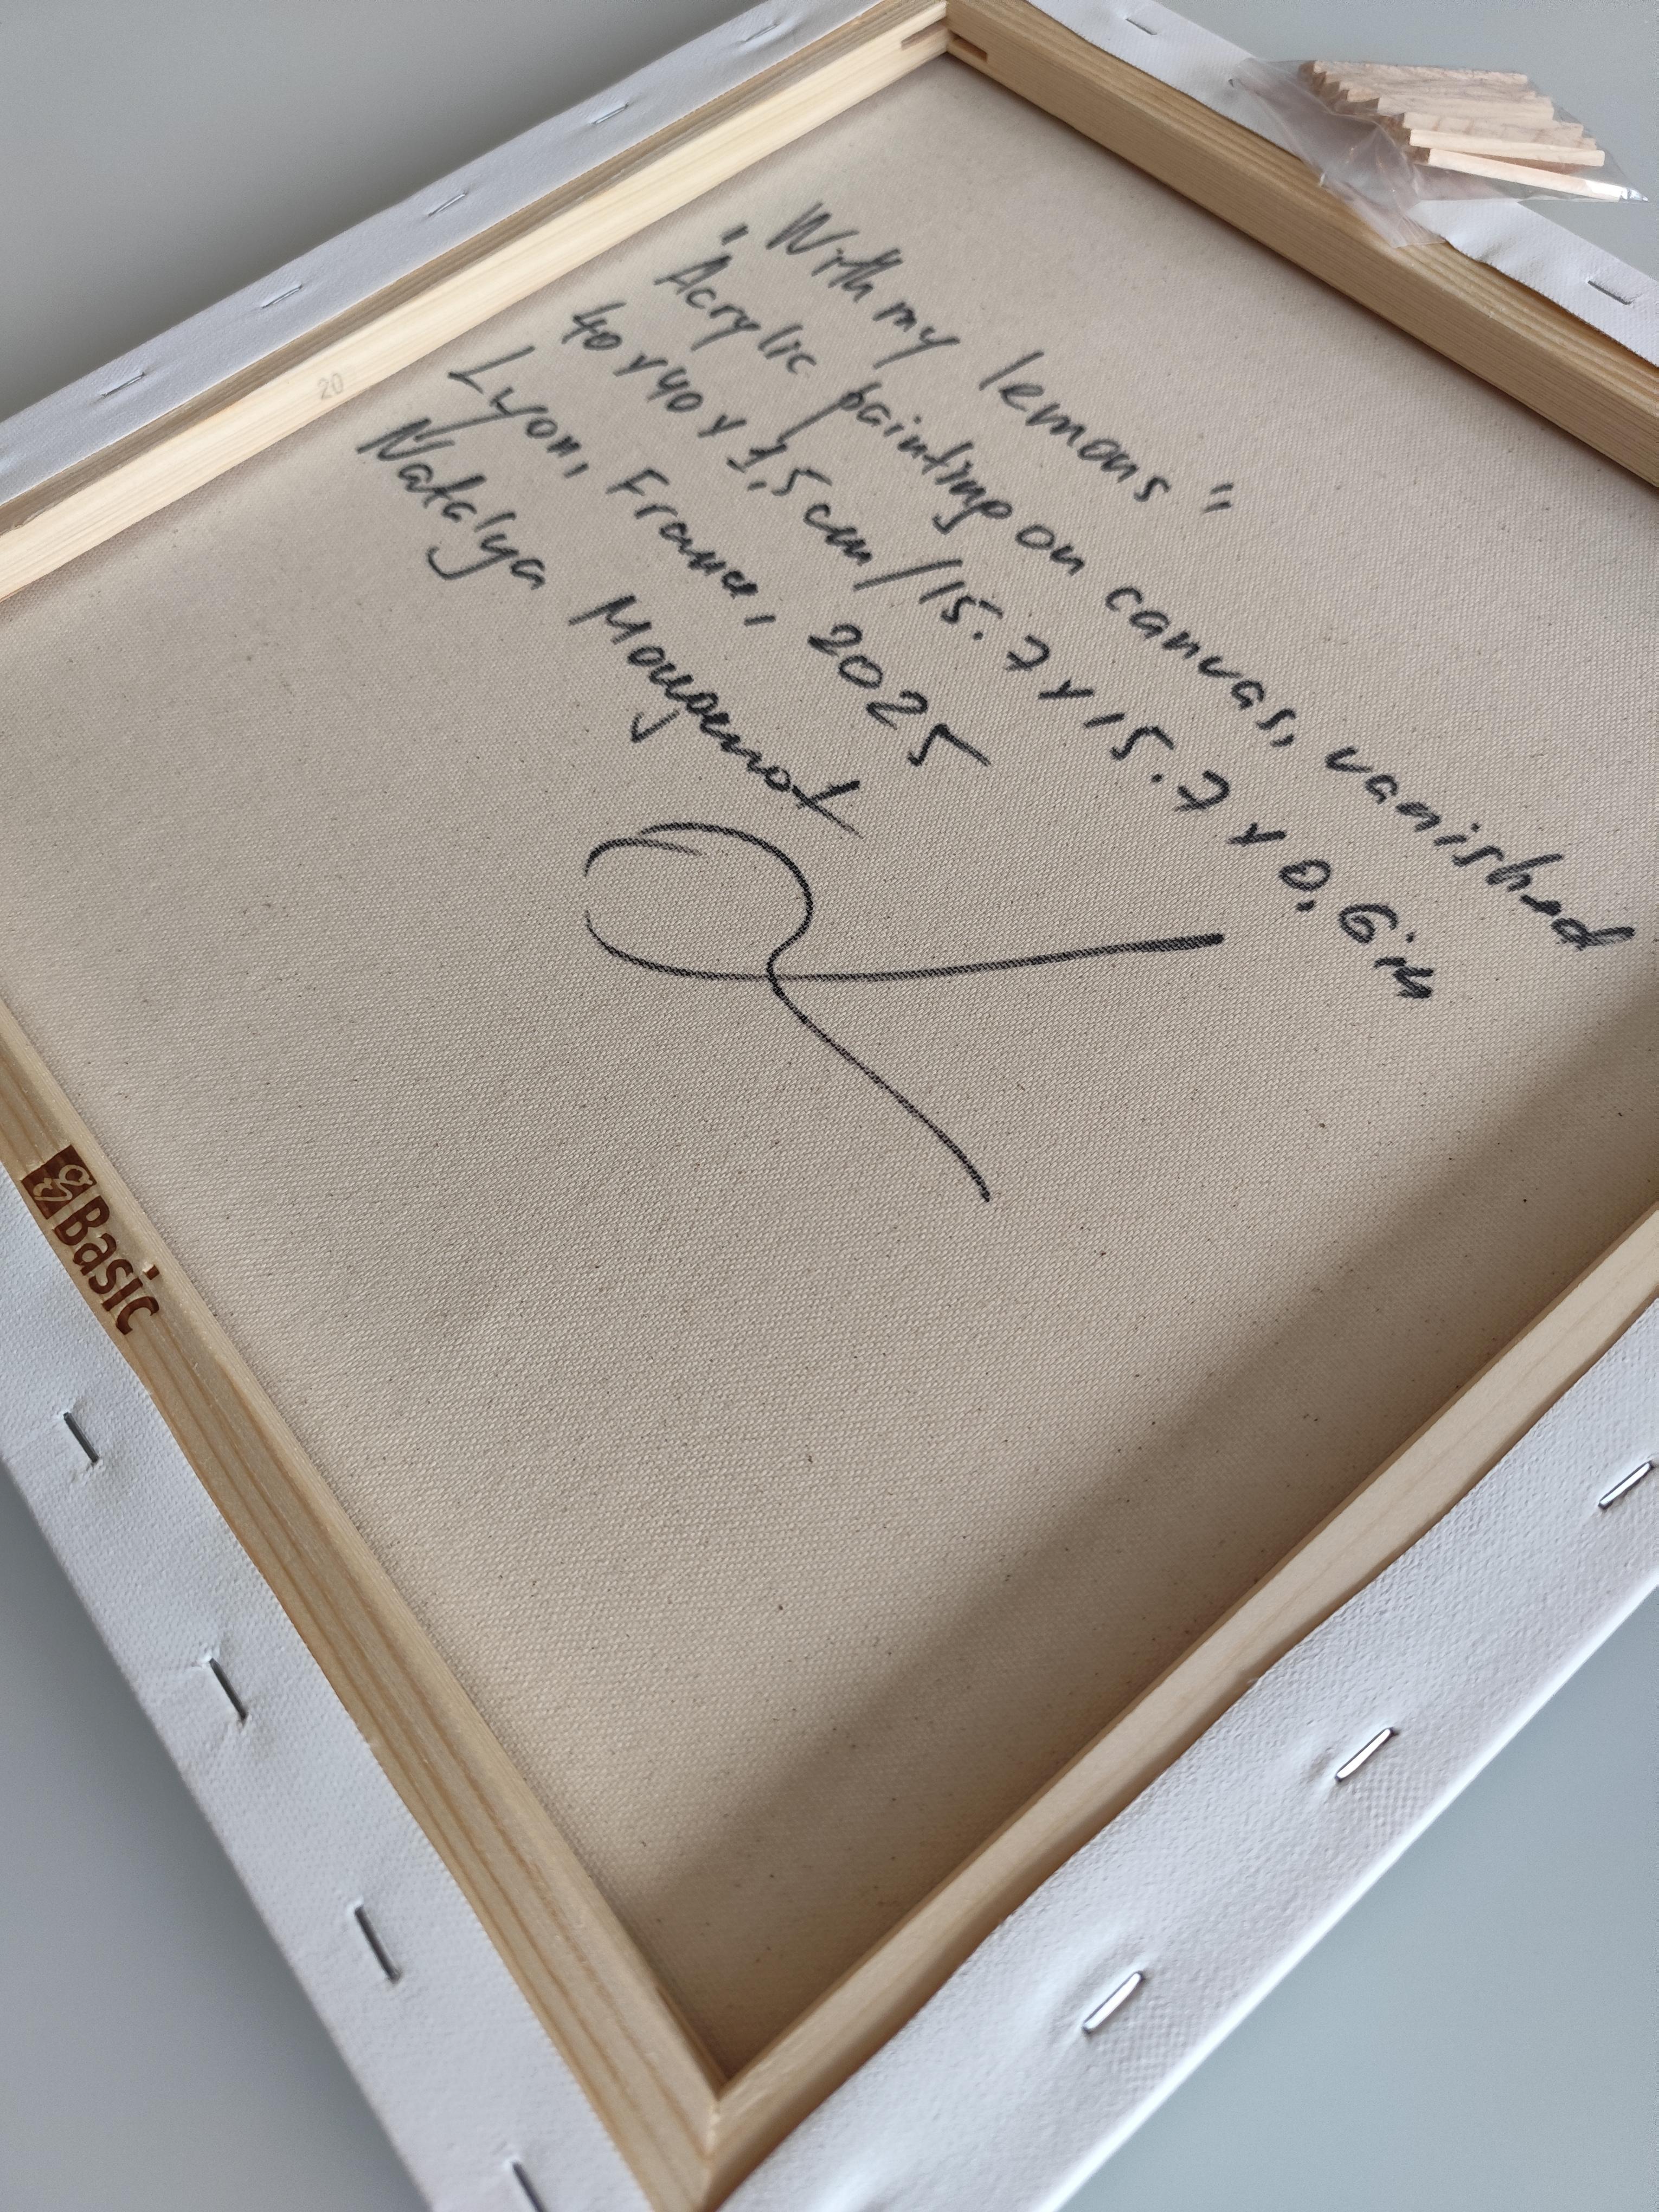 "With my lemons"
Acrylic painting on canvas, vanished
40 x 40 x 1,5 cm / 15.7 x 15.7 x 0,6 in
Lyon, France, 2025
Natalya Mougenot
20
Basic